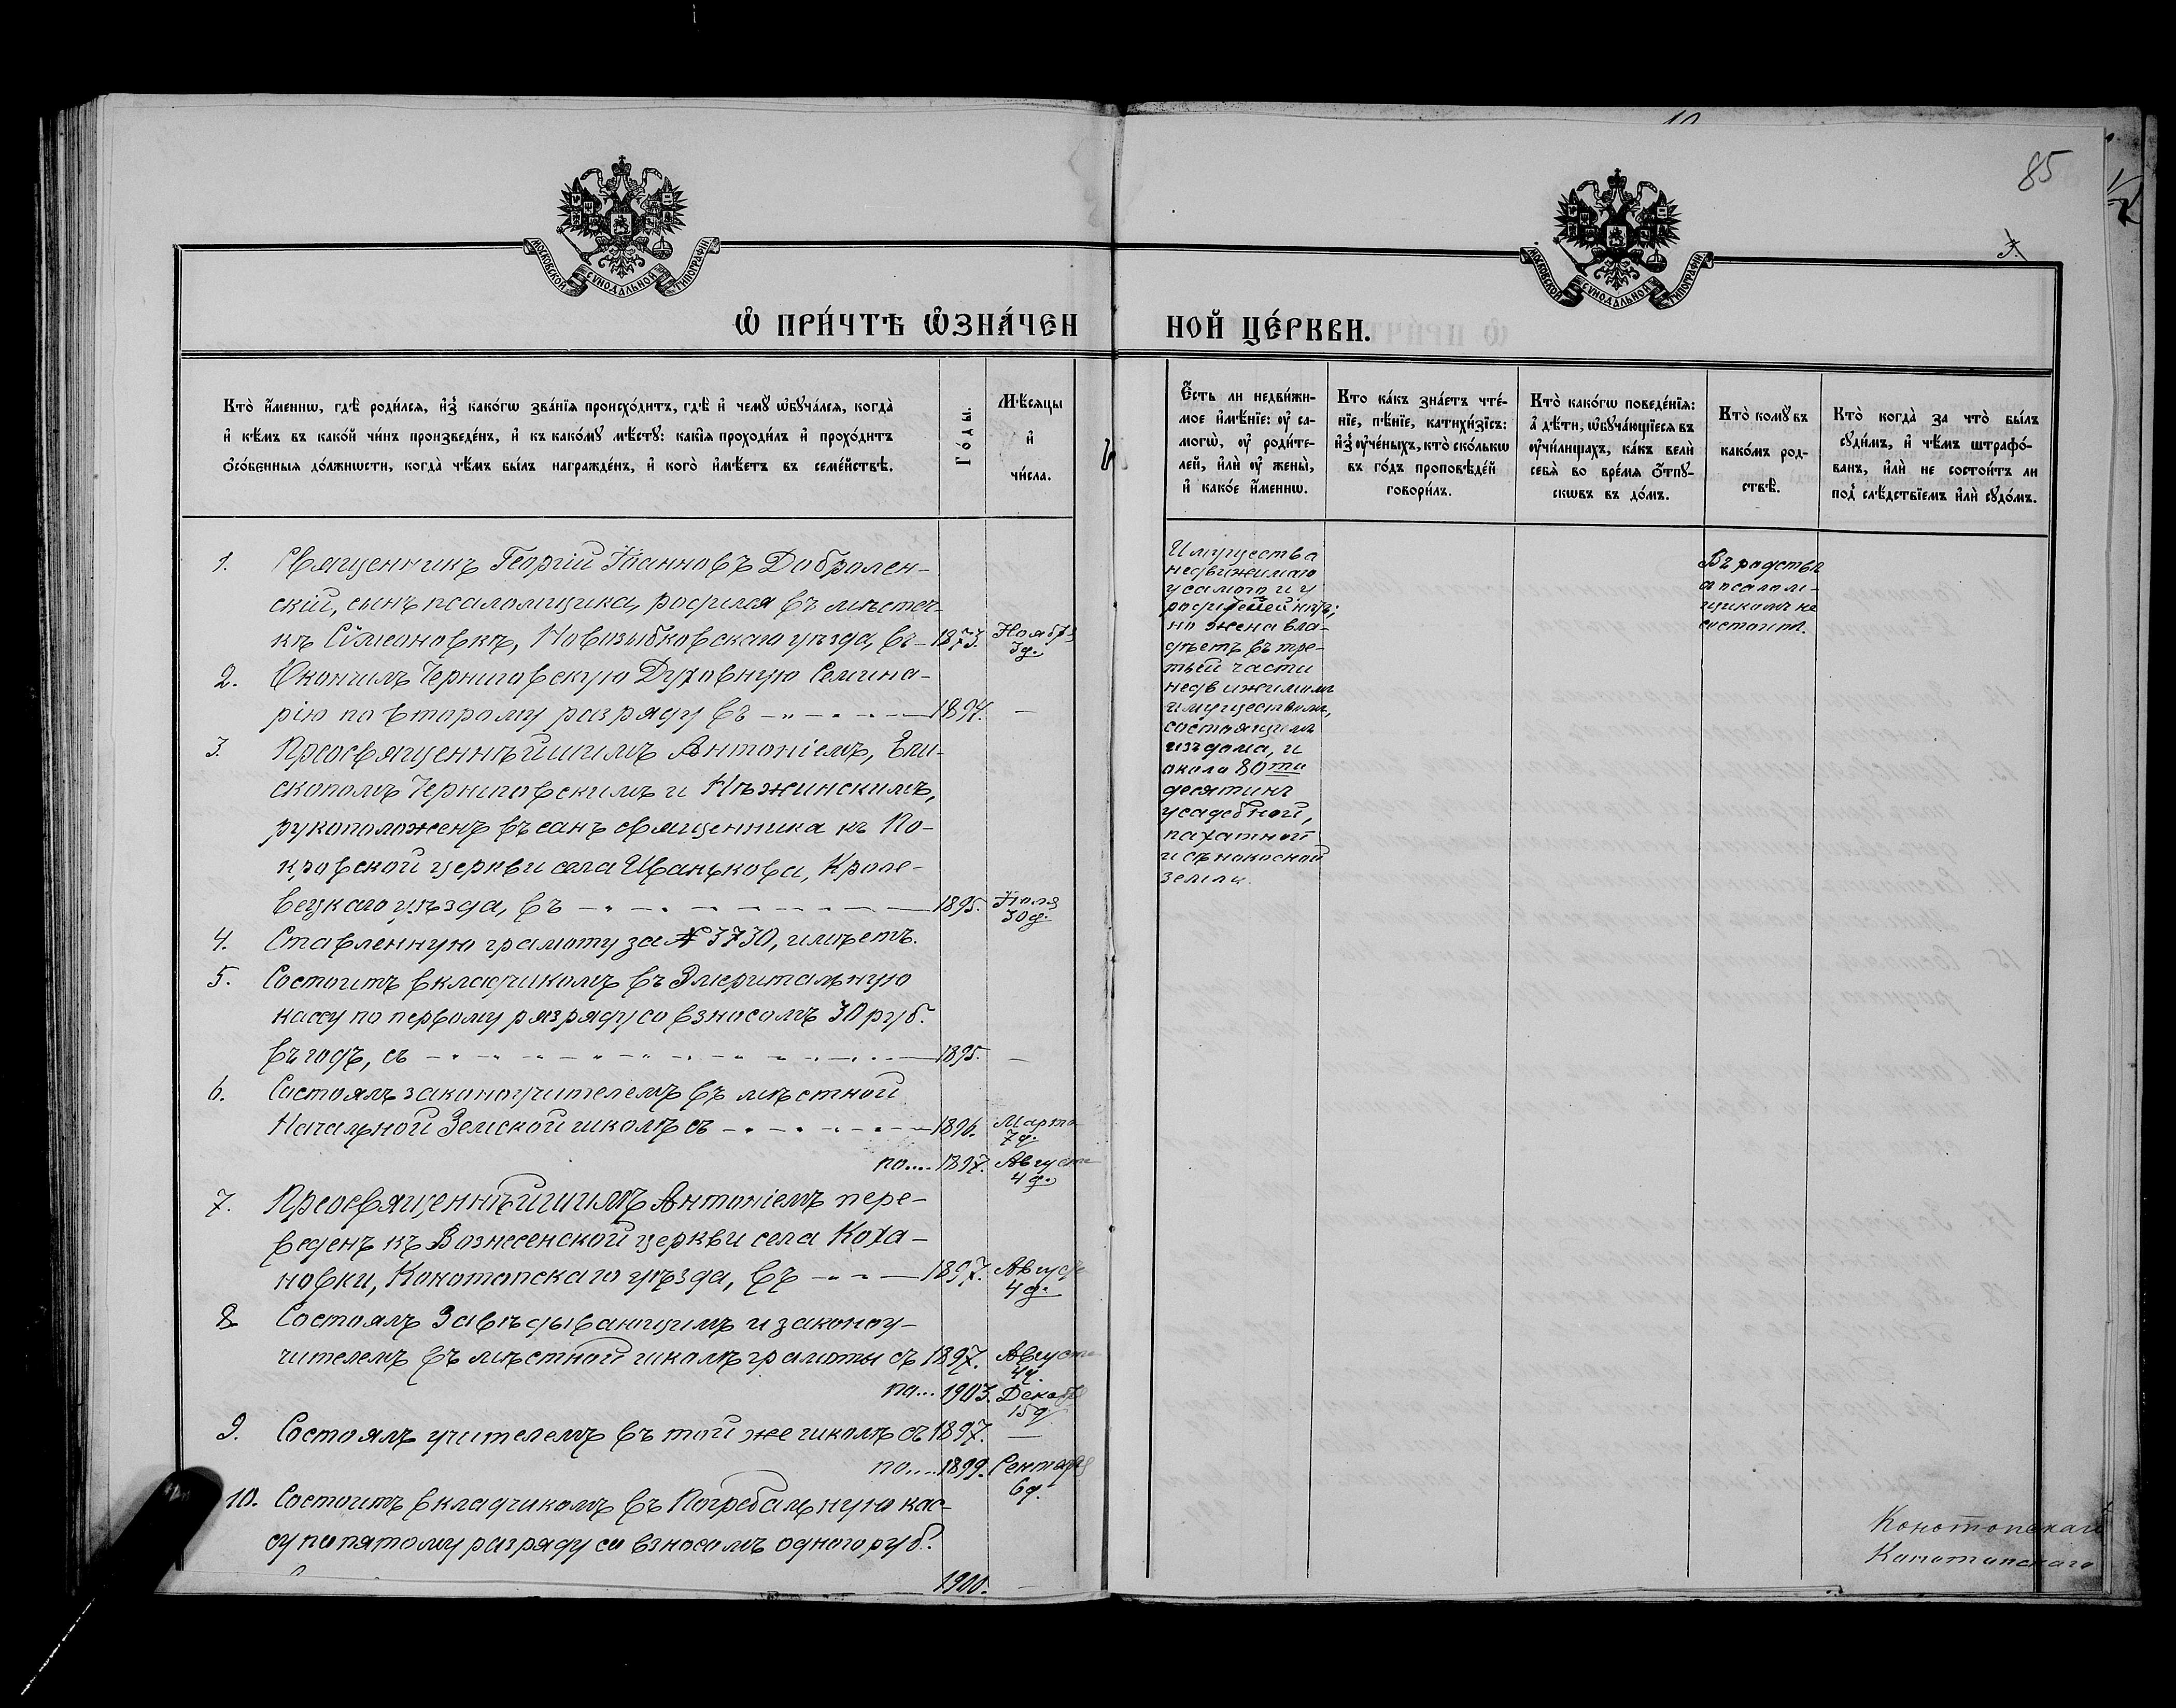 85
3.
МОСКОВСКОЙ СѴНОДАЛЬНОЙ ТИПОГРАФІИ
МОСКОВСКОЙ СѴНОДАЛЬНОЙ ТИПОГРАФІИ
Ѽ ПРИ́ЧТѢ Ѽ҆ЗНА́ЧЕН
НОЙ ЦЕ́РКВИ.
Кто̀ и҆́меннѡ, гдѣ̀ роди́лсѧ, и҆з̾ како́гѡ зва́нїѧ происхо́дитъ, гдѣ̀ и҆ чемꙋ̀ ѡ҆бꙋча́лсѧ, когда̀
и҆ кѣ́мъ въ како́й чи́нъ произведе́нъ, и҆ къ како́мꙋ мѣ́стꙋ: какі̑ѧ проходи́лъ и҆ прохо́дитъ
ѻ҆со́бенныѧ до́лжнѡсти, когда̀ чѣ́мъ бы́лъ награжде́нъ, и҆ кого̀ и҆мѣ́етъ въ семе́йствѣ.
Го́ды.
Мѣ́сѧцы
и҆
чи́сла.
Е҆́сть ли недви́жи-
мое и҆мѣ́нїе: ᲂу҆ са-
могѡ̀, ᲂу҆ роди́те-
лей, и҆лѝ ᲂу҆ жены̀,
и҆ како́е и҆́меннѡ.
Кто ка́къ зна́етъ чте́-
нїе, пѣ́нїе, катихи́зїсъ:
и҆з̾ ᲂу҆че́ныхъ, кто̀ ско́лькѡ
въ го́дъ проповѣ́дей
говори́лъ.
Кто̀ како́гѡ поведе́нїѧ:
а҆ дѣ́ти, ѡ҆бꙋча́ющїесѧ въ
ᲂу҆чи́лищахъ, ка́къ велѝ
себѧ̀ во вре́мѧ ѻ҆тпꙋ-
скѡвъ въ до́мъ.
Кто̀ комꙋ̀ въ
како́мъ род-
ствѣ̀.
Кто̀ когда̀ за что̀ бы́лъ
сꙋди́мъ, и҆ чѣ́мъ штрафо́-
ванъ, и҆лѝ не состои́тъ ли
под̾ слѣ́дствїемъ и҆лѝ сꙋдо́мъ.
1. Священникъ Георгій Іоанновъ Доброленскій-
скій, сынъ псаломщика, родился въ мѣстеч-
кѣ Сѵмеоновкѣ, Новозыбковскаго уѣзда, въ – 1873. Ноября 3 д.
2. Окончилъ Черниговскую Духовную Семина-
рію по второму разряду въ – „ – „ – 1894. –
3. Преосвященнѣйшимъ Антоніемъ, Епи-
скопомъ Черниговскимъ и Нѣжинскимъ,
рукоположенъ въ санъ священника къ По-
кровской церкви села Иванькова, Кроле-
вецкаго уѣзда, въ – „ – 1895. Іюля 30 д.
4. Ставленную грамоту за № 3730, имѣетъ.
5. Состоитъ вкладчикомъ въ Эмеритальную
кассу по первому разряду со взносомъ 30 руб.
въ годъ, съ – „ – „ – 1895. –
6. Состоялъ законоучителемъ въ мѣстной
Начальной Земской школѣ съ – „ – „ – 1896. Марта 7 д.
по.... 1897. Августа 4 д.
7. Преосвященнѣйшимъ Антоніемъ пере-
веденъ къ Вознесенской церкви села Коха-
новки, Конотопскаго уѣзда, въ – „ – 1897. Августа 4 д.
8 Состоялъ Завѣдывающимъ и законоу-
чителемъ въ мѣстной школѣ грамоты съ 1897. Августа 4 д.
по... 1903. Декабр 15 д
9. Состоялъ учителемъ въ той же школѣ съ 1897. –
по.... 1899. Сентября 6 д.
10. Состоитъ вкладчикомъ въ Погребальную кас-
су по пятому разряду со взносомъ одного руб.
1900. –
Имущества
недвижимаго
у самого и у
родителей нѣтъ;
но жена вла-
дѣетъ въ тре-
тьей части
недвижимымъ
имуществомъ,
состоящимъ
изъ дома, и
около 80ти
десятинъ
усадебной,
пахатной
и сѣнокосной
земли.
Въ родствѣ
а псалом-
щикомъ не
состоитъ.
Конотопскаг
Конотопскаго